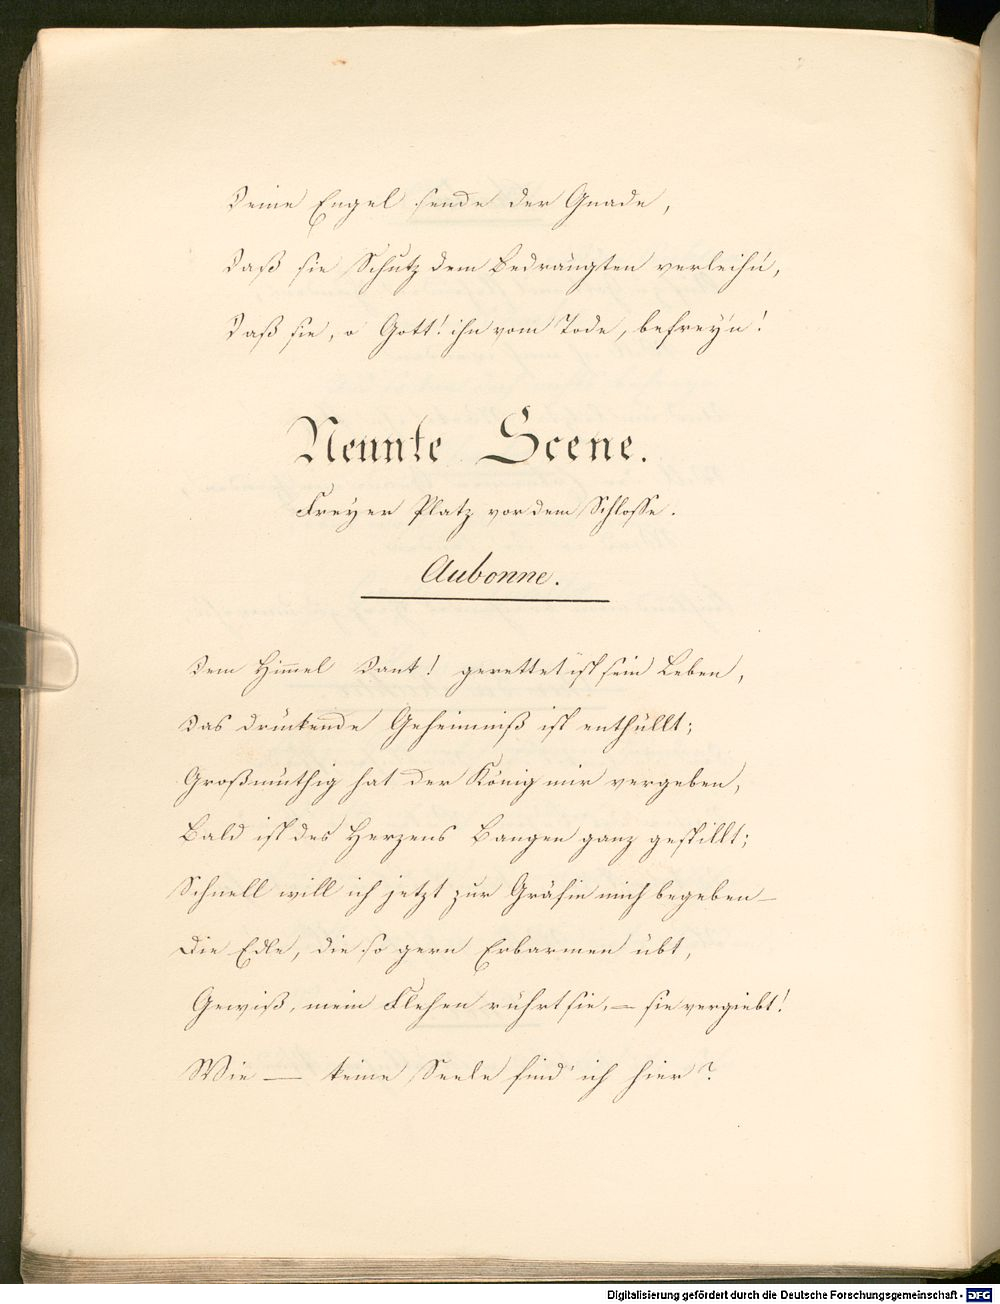 Deine Engel sende der Gnade,
Daß sie Schutz dem Bedrängten verleih'n,
Daß sie, o Gott! ihn vom Tode, befrey'n!
Neunte Scene.
Freyer Platz vor dem Schlosse.
Aubonne.
Dem Him̅el Dank! gerettet ist sein Leben,
Das drückende Geheimniß ist enthüllt;
Großmüthig hat der König mir vergeben,
Bald ist des Herzens Bangen ganz gestillt;
Schnell will ich jetzt zur Gräfin mich begeben —
Die Edle, die so gern Erbarmen übt,
Gewiß, mein Flehen rührt sie, — sie vergiebt!
Wie — keine Seele find' ich hier?
Digitalisierung gefördert durch die Deutsche Forschungsgemeinschaft - DFG